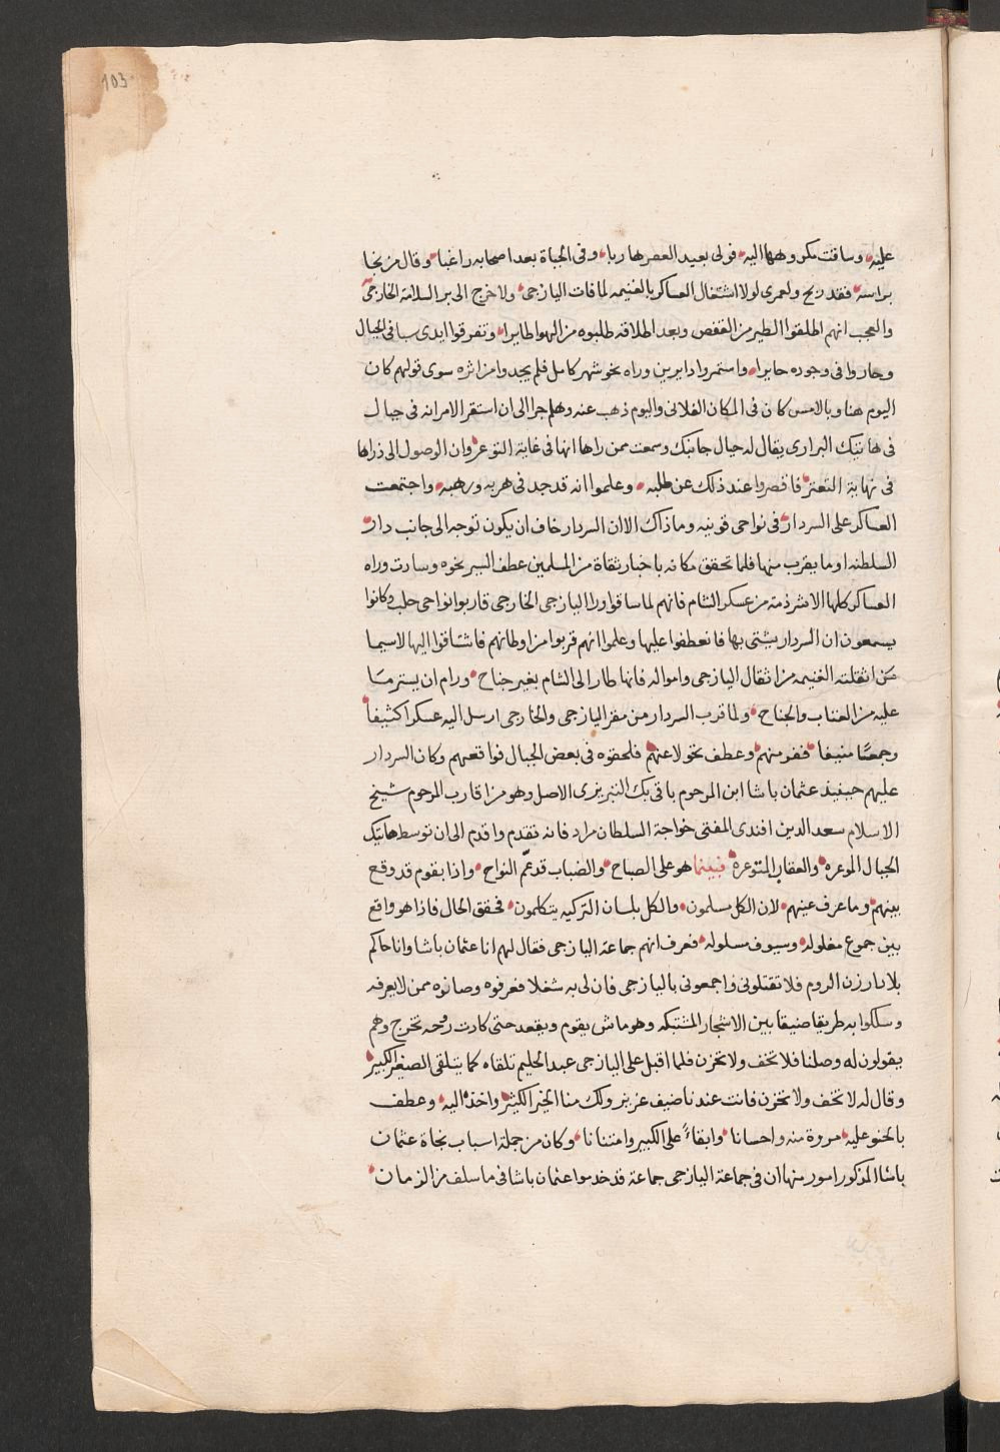 103
عليه وساقت مكروهها اليه فولى بعيد العصر هاربا وفى الحياة بعد اصحابه راغبا وقال من نجا
براسه فقد ربح ولعمرى لولا اشتغال العساكر بالغنيمه لما فات اليازجى ولا خرج الى بر السلامة الخارجى
والعجب انهم اطلقوا الطير من القفص وبعد اطلاقه طلبوه من الهوا طايرا وتفرقوا ايدى سبا فى الجبال
وحاروا فى وجوده حايرا واستمروا دايرين وراه نحو شهر كامل فلم يجدوا من اثره سوى قولهم كان
اليوم هنا وبالامس كان فى المكان الفلانى واليوم ذهب عنه وهلم جرا الى ان استقر الامر انه فى جبال
فى هاتيك البرارى يقال له جبال جانيك وسمعت ممن راها انها فى غاية التوعر وان الوصول الى ذراها
فى نهاية التعذر فاقصروا عند ذلك عن طلبه وعلموا انه قد جد فى هربه ورهبه واجتمعت
العساكر على السردار فى نواحى قونيه وما ذاك الا ان السردار خاف ان يكون توجه الى جانب دار
السلطنه او ما يقرب منها فلما تحقق مكانه باخبار ثقاة من المسلمين عطف السير نحوه وسارت وراه
العساكر كلها الا شرذمة من عسكر الشام فانهم لما ساقوا ورا اليازجى الخارجى قاربوا نواحى حلب وكانوا
يسمعون ان السردار يشتى بها فانعطفوا عليها وعلموا انهم قربوا من اوطانهم فاشتاقوا اليها لاسيما
من اثقلته الغنيمه من اثقال اليازجى وامواله فانها طار الى الشام بغير جناح ورام ان يستر ما
عليه من العتاب والجناح ولما قرب السردار من مقر اليازجى والخارجى ارسل اليه عسكرا كثيفا
وجمعا منيفا ففر منهم وعطف نحو لا عنهم فلحقوه فى بعض الجبال فواقعهم وكان السردار
عليهم حينيذ عثمان باشا ابن المرحوم باقى بك التبريزى الاصل وهو من اقارب المرحوم شيخ
الاسلام سعد الدين افندى المفتى خواجة السلطان مراد فانه تقدم واقدم الى ان توسط هاتيك
الجبال الموعره والعقار المتوعرة فبينما هو على الصباح والضباب قد عم النواح واذا بقوم قد وقع
بينهم وما عرف عينهم لان الكل مسلمون والكل بلسان التركيه يتكلمون فحقق الحال فاذا هو واقع
بين جموع مغلوله وسيوف مسلوله فعرف انهم جماعة اليازجى فقال لهم انا عثمان باشا وانا حاكم
بلاد ارزن الروم فلا تقتلونى واجمعونى باليازجى فان لى به شغلا فعرفوه وصانوه ممن لا يعرفه
وسلكوا به طريقا ضيقا بين الاشجار المشتبكه وهو ماش يقوم ويقعد حتى كادت روحه تخرج وهم
يقولون له وصلنا فلا تخف ولا تحزن فلما اقبل على اليازجى عبد الحليم تلقاه كما يتلقى الصغير الكبير
وقال له لا تخف ولا تحزن فانت عندنا ضيف عزيز ولك منا الخير الكثير واخذه اليه وعطف
بالحنو عليه مروة منه واحسانا وابقاءً على الكبير وامتنانا وكان من جملة اسباب نجاة عثمان
باشا المذكور امور منها ان فى جماعة اليازجى جماعة قد خدموا عثمان باشا فى ما سلف من الزمان